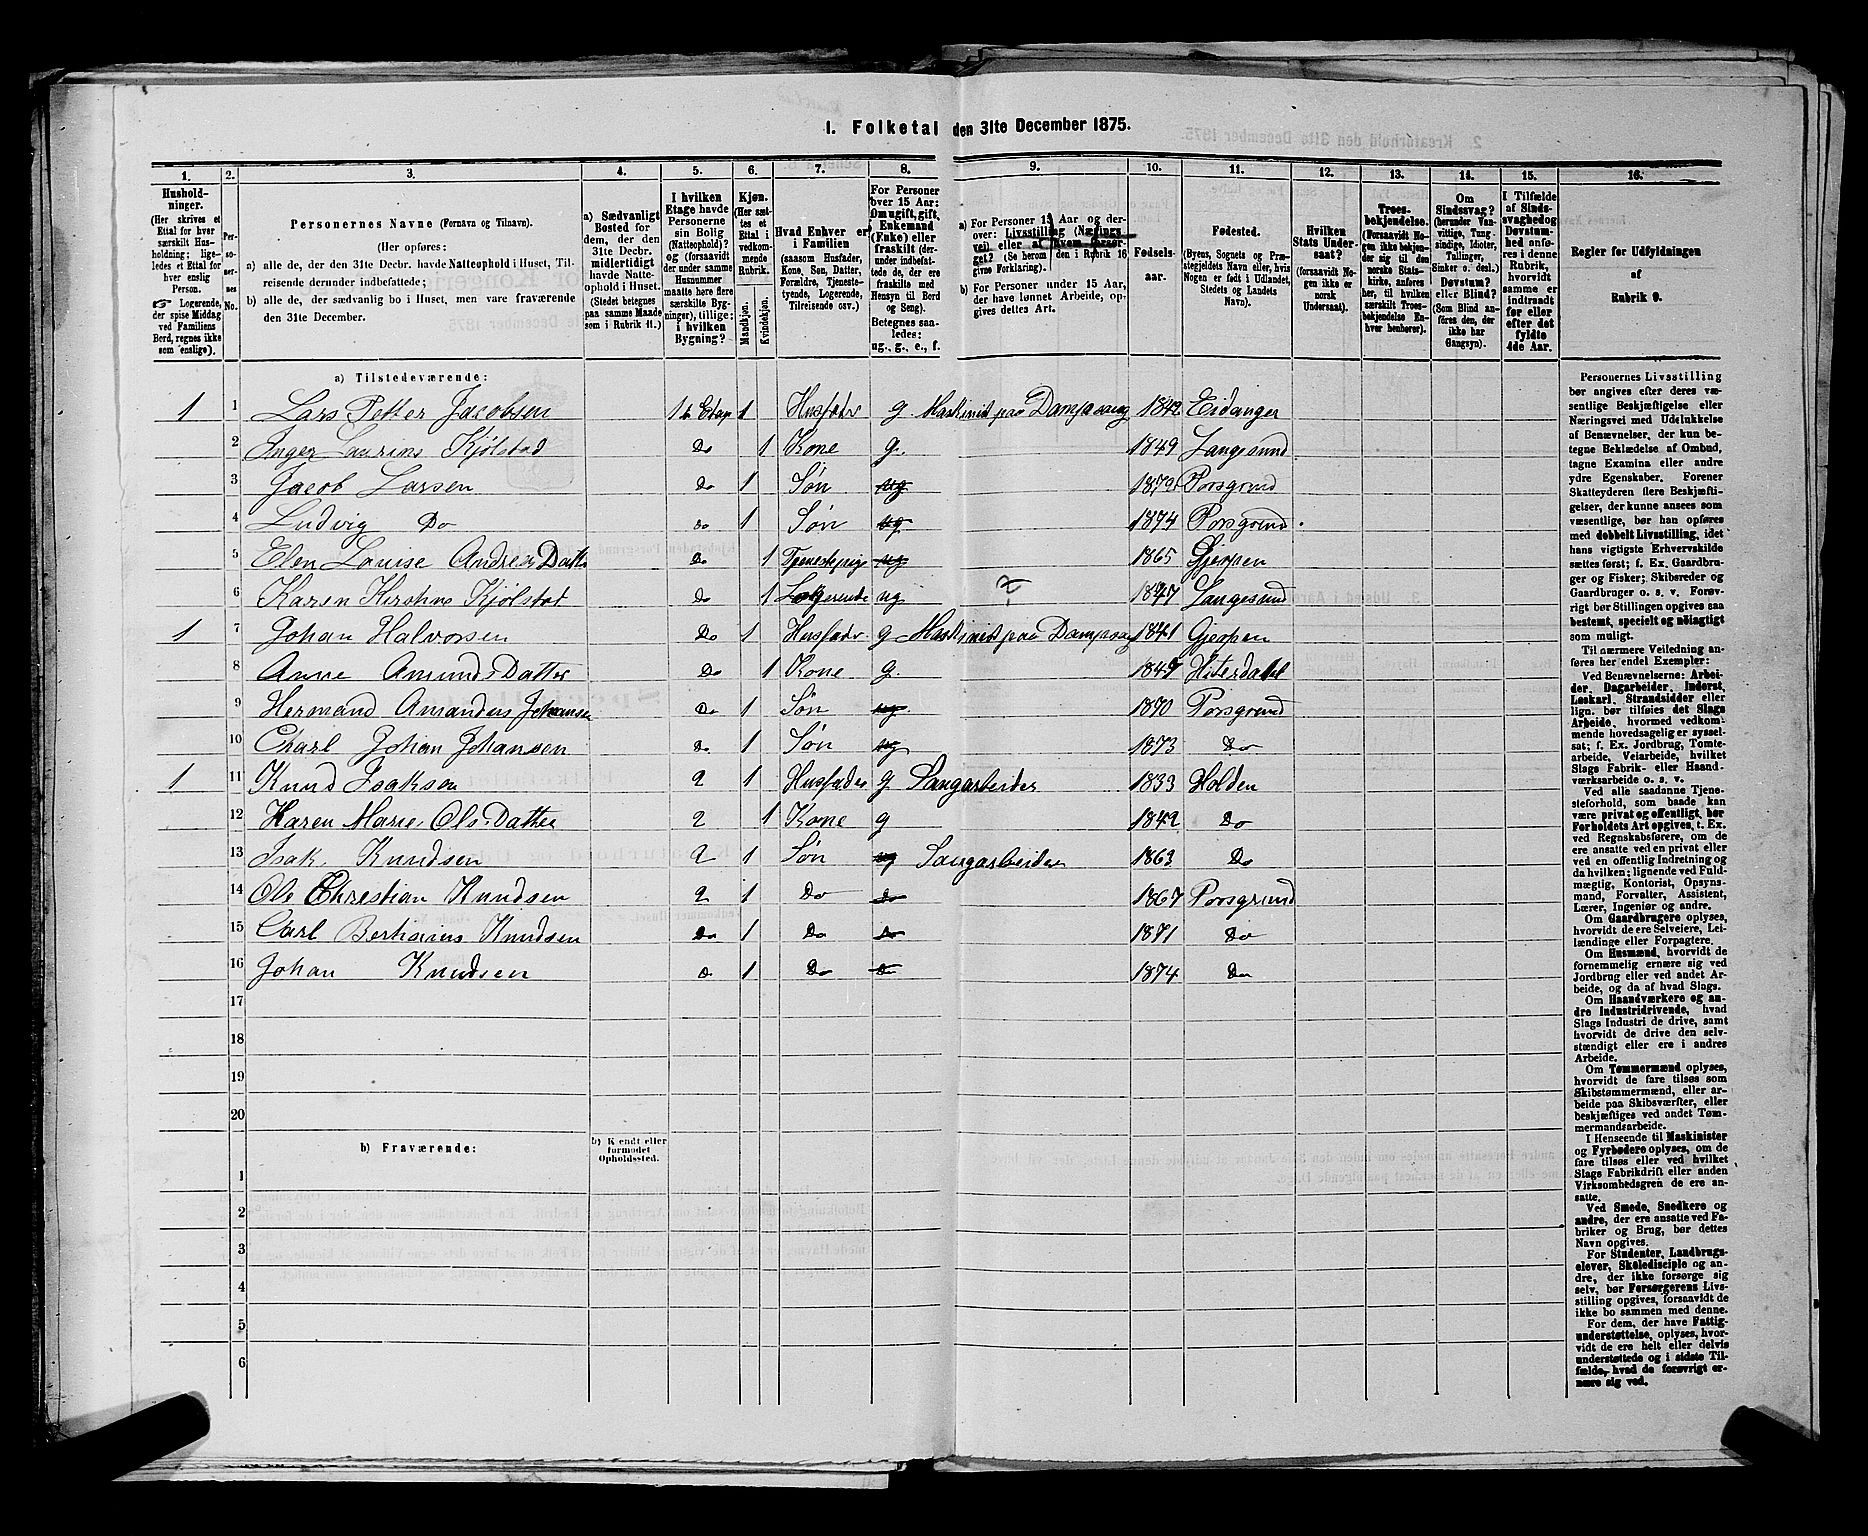 1. Folketal den 31te December 1875.
1. 2. 3. 4. 5. 6. 7. 8. 9. 10. 11. 12. 13. 14. 15. 16.
Hushold-
ninger.
(Her skrives et
Ettal for hver
særskilt Hus-
holdning; lige-
ledes et Ettal for
hver enslig
Person.
☞ Logerende,
der spise Middag
ved Familiens
Bord, regnes ikke
som enslige).
Per-
so-
ner-
nes
No.
Personernes Navne (Fornavn og Tilnavn).
(Her opføres:
a) alle de, der den 31te Decbr. havde Natteophold i Huset, Til-
reisende derunder indbefattede;
b) alle de, der sædvanlig bo i Huset, men vare fraværende
den 31te December.
a) Sædvanligt
Bosted for
dem, der den
31te Decbr.
midlertidigt
havde Natte-
ophold i Huset.
(Stedet betegnes
paa samme Maade
som i Rubrik 11.)
I hvilken
Etage havde
Personerne
sin Bolig
(Natteophold)?
og (forsaavidt
der under samme
Husnummer
maatte høre flere
særskilte Byg-
ninger), tillige:
i hvilken
Bygning?
Kjøn.
(Her sæt-
tes et
Ettal i
vedkom-
mende
Rubrik.
Mandkjøn.
Kvindekjøn.
Hvad Enhver er
i Familien
(saasom Husfader,
Kone, Søn, Datter,
Forældre, Tjeneste-
tyende, Logerende,
Tilreisende osv.)
For Personer
over 15 Aar:
Om ugift, gift,
Enkemand
(Enke) eller
fraskilt (der-
under indbefat-
tede de, der ere
fraskilte med
Hensyn til Bord
og Seng).
Betegnes saa-
ledes:
ug., g., e., f.
a) For Personer 15 Aar og der-
over: Livsstilling (Nærings-
vei) eller af hvem forsør-
get? (Se herom den i Rubrik 16
givne Forklaring).
b) For Personer under 15 Aar,
der have lønnet Arbeide, op-
gives dettes Art.
Fødsels-
aar.
Fødested.
(Byens, Sognets og Præ-
stegjeldets Navn eller, hvis
Nogen er født i Udlandet,
Stedets og Landets
Navn).
Hvilken
Stats Under-
saat?
(forsaavidt No-
gen ikke er
norsk
Undersaat).
Troes-
bekjendelse.
(Forsaavidt No-
gen ikke bekjen-
der sig til den
norske Stats-
kirke, anføres
her, til hvilken
særskilt Troes-
bekjendelse En-
hver henhører).
Om
Sindssvag?
(herunder Van-
vittige, Tung-
sindige, Idioter,
Tullinger,
Sinker o. desl.)
Døvstum?
eller Blind?
(Som Blind an-
føres den, der
ikke har
Gangsyn).
I Tilfælde
af Sinds-
svaghed og
Døvstum-
hed anfø-
res i denne
Rubrik,
hvorvidt
samme er
indtraadt
før eller
efter det
fyldte
4de Aar.
Regler for Udfyldningen
af
Rubrik 9.
a) Tilstedeværende:
1 1 Lars Petter Jacobsen 1 1 Husfader g Maskinist paa Dampsaug 1842 Eidanger
2 Inger Laurine Kjølstad Do 1 Kone g. 1849 Langesund
3 Jacob Larsen Do 1 Søn ug Porsgrund
4 Ludvig Do Do 1 Søn ug 1874 Porsgrund
5 Elen Louise Andrea Datter Do 1 Tjenestepige ug 1865 Gjerpen
6 Karen Kirstine Kjølstad Do 1 Logerende ug 1847 Langesund
1 7 Johan Halvorsen Do 1 Husfader g Maskinist paa Dampsaug 1841 Gjerpen
8 Anne Amunds Datter Do 1 Kone g. Hiterdahl
9 Hermand Amandus Johansen Do 1 Søn ug. 1870 Porsgrund
10 Charl Johan Johansen Do 1 Søn ug 1873 Do
1 11 Knud Isaksen 2 1 Husfader g Saugarbeider 1833 Holden
12 Karen Marie Ols Datter 2 1 Kone g 1842 Do
13 Isak Knudsen 2 1 Søn ug Saugarbeider 1863 Do
14 Ole Christian Knudsen 2 1 Do Do 1867 Porsgrund
15 Carl Knudsen Do 1 Do Do 1871 Do
16 Johan Knudsen Do 1 Do Do 1874 Do
17
18
19
20
b) Fraværende:
b) Kjendt eller
formodet
Opholdssted.
1
2
3
4
5
6
Personernes Livsstilling
bør angives efter deres væ-
sentlige Beskjæftigelse eller
Næringsvei med Udelukkelse
af Benævnelser, der kun be-
tegne Beklædelse af Ombud,
tagne Examina eller andre
ydre Egenskaber. Forener
Skatteyderen flere Beskjæfti-
gelser, der kunne ansees som
væsentlige, bør han opføres
med dobbelt Livsstilling, idet
hans vigtigste Erhvervskilde
sættes først; f. Ex. Gaardbru-
ger og Fisker; Skibsreder og
Gaardbruger o. s. v. Forøv-
rigt bør Stillingen opgives saa
bestemt, specielt og nøiagtigt
som muligt.
Til nærmere Veiledning an-
føres her endel Exempler:
Ved Benævnelserne: Arbei-
der, Dagarbeider, Inderst,
Løskarl, Strandsidder eller
lign. bør tilføies det Slags
Arbeide, hvormed vedkom-
mende hovedsagelig er syssel-
sat; f. Ex. Jordbrug, Tomte-
arbeide, Veiarbeide, hvilket
Slags Fabrik- eller Haand-
værksarbeide o. s. v.
Ved alle saadanne Tjene-
steforhold, som baade kan
være privat og offentligt, bør
Forholdets Art opgives, t. Ex.
ved Regnskabsførere, om de
ere ansatte ved en privat eller
ved en offentlig Indretning og
da hvilken; lignende ved Fuld-
mægtig, Kontorist, Opsyns-
mand, Forvalter, Assistent,
Lærer, Ingeniør og andre.
Om Gaardbrugere oplyses,
hvorvidt de ere Selveiere, Lei-
lændinge eller Forpagtere.
Om Husmænd, hvorvidt de
fornemmelig ernære sig ved
Jordbrug eller ved andet Ar-
beide, og da af hvad Slags.
Om Haandværkere og an-
dre Industridrivende, hvad
Slags Industri de drive, samt
hvorvidt de drive den selv-
stændigt eller ere i andres
Arbeide.
Om Tømmermænd oplyses,
hvorvidt de fare tilsøs som
Skibstømmermænd, eller ar-
beide paa Skibsværfter, eller
beskjæftiges ved andet Tøm-
mermandsarbeide.
I Henseende til Maskinister
og Fyrbødere oplyses, om de
fare tilsøs eller ved hvilket
Slags Fabrikdrift eller anden
Virksomhedsgren de ere an-
satte.
Ved Smede, Snedkere og
andre, der ere ansatte ved Fa-
briker og Brug, bør dettes
Navn opgives.
For Studenter, Landbrugs-
elever, Skoledisciple og an-
dre, der ikke forsørge sig
selv, bør Forsørgerens Livs-
stilling opgives, forsaavidt de
ikke bo sammen med denne.
For dem, der have Fattig-
understøttelse, oplyses, hvor-
vidt de ere helt eller delvis
understøttede og i sidste Til-
fælde, hvad de forøvrigt er-
nære sig ved.